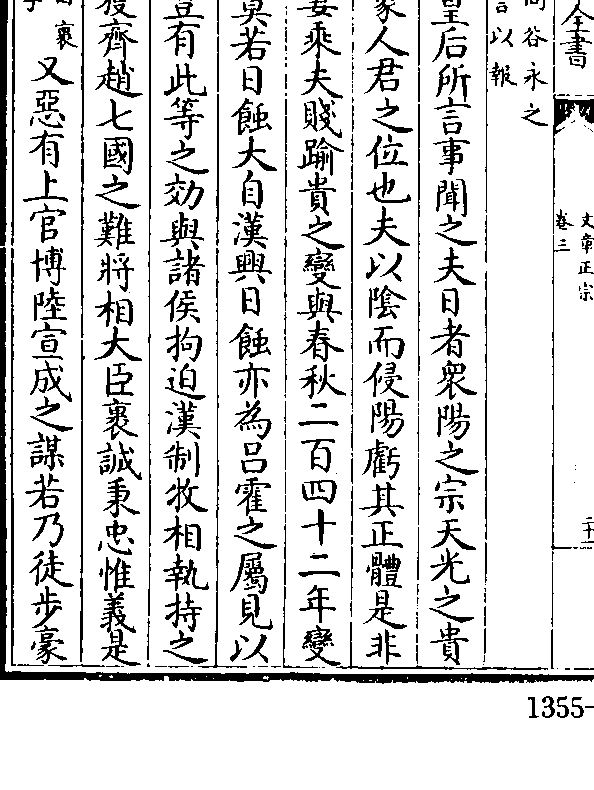 全書
文章正宗
卷三
二十
谷永之
言以報
皇后所言事聞之夫日者衆陽之宗天光之貴
人君之位也夫以陰而侵陽虧其正體是非
妻乘夫賤踰貴之變與春秋二百四十二年變
莫若日蝕大自漢興日蝕亦為呂霍之屬見以
豈有此等之効與諸侯拘迫漢制牧相執持之
齊趙七國之難將相大臣裹誠秉忠惟義是
裹
又惡有上官博陸宣成之謀若乃徒步豪
1355-